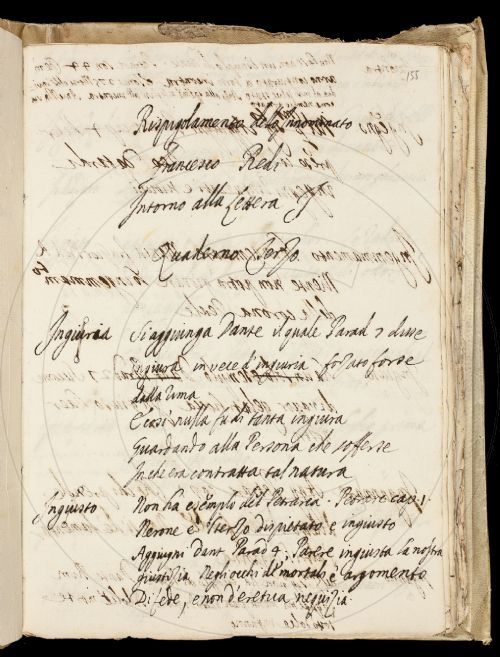 155
Rispigolamento dell'Innominato
Francesco Redi
Intorno alla Lettera J
Quaderno Terzo
Ingiuria Si aggiunga Dante il quale Parad 7 disse
Ingiura in vece d'ingiuria forzato forse
dalla rima
E così nulla fu di tanta ingiura
Guardando alla Persona che sofferse
In che era contratta tal natura
Ingiusto Non ha esempio del Petrarca. Petrarc canz 1
Nerone è 'l terzo dispietato e ingiusto
Aggiugni Dant. Parad 4. Parere ingiusta la nostra
giustizia Negli occhi de' mortali è argomento
Di fede, e non d'eretica nequizia.